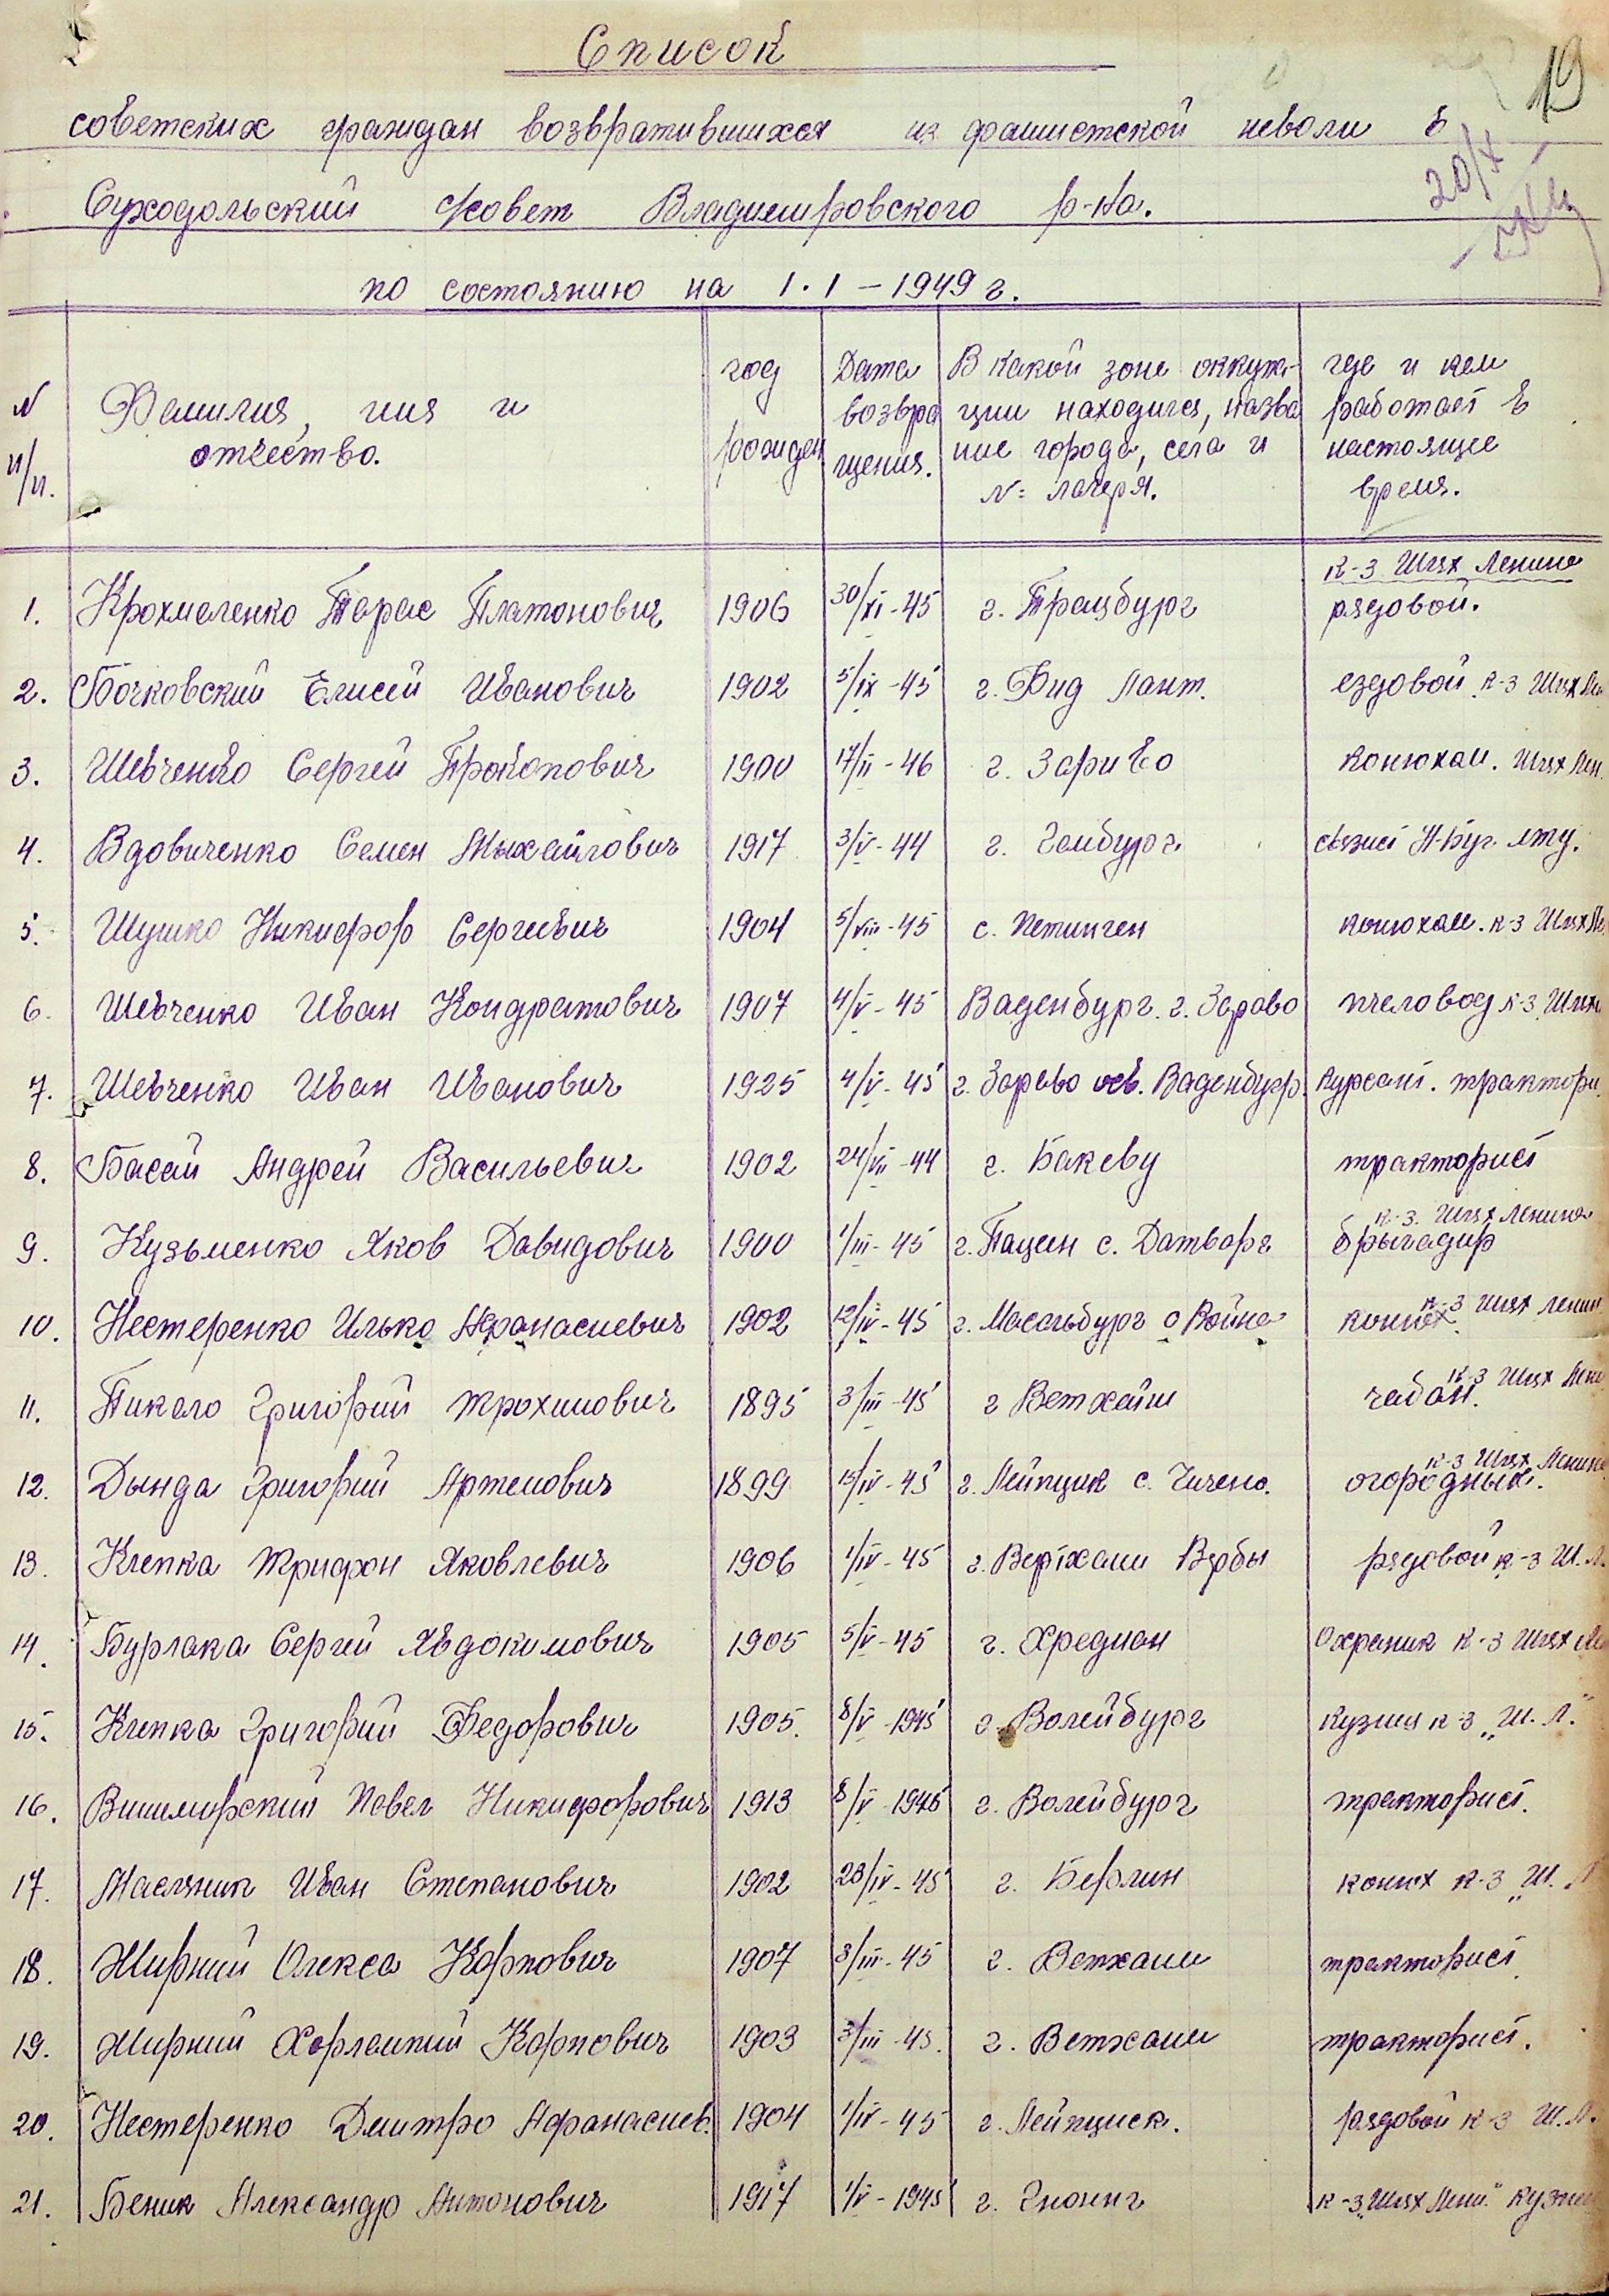 19
Список
советских граждан возвратившихся из фашистской неволи в
20/X
Суходольский с/совет Владимировского р-на.
по состоянию на 1.1-1949 г.
N п/п. | Фамилия, имя и отчество. | год рожден | Дата возвращения. | В какой зоне оккупации находился, название города, села и N: лагеря. | где и кем работает в настоящее время.
1. Крохмаленко Тарас Платонович 1906 30/XI-45 г. Трамбург к-з Шлях Ленина рядовой.
2. Бочковский Елисей Иванович 1902 5/IX-45 г. Фид Лант. ездовой к-з Шлях Ле
3. Шевченко Сергей Прокопович 1900 17/II-46 г. Зариво Конюхом. Шлях Лен.
4. Вдовиченко Семен Михайлович 1917 3/V-44 г. Гамбург. связист Н-Буг.
5. Шушко Никифор Сергиевич 1904 5/VIII-45 с. Петинген конюхом. к-з Шлях Ле
6. Шевченко Иван Кондратович 1907 4/V-45 Ваденбург. г. Зарово пчеловод к-з Шлях
7. Шевченко Иван Иванович 1925 4/V-45 г. Зарово Ваденбург. Курсант. трактори
8. Басай Андрей Васильевич 1902 24/VII-44 г. Бакеву тракторист
9. Кузьменко Яков Давидович 1900 1/III-45 г. Пацен с. Датварг к-з. Шлях Ленина брыгадир
10. Нестеренко Илько Афанасиевич 1902 12/IV-45 г. Масальбург с Война к-з Шлях Ленин конюх.
11. Пикало Григорий Трохимович 1895 3/III-45 г Ветхайм к-з Шлях Лени чабан.
12. Дында Григорий Артемович 1899 15/IV-45 г. Лейпцик с. Чичено. к-з Шлях Ленина огородник.
13. Клепка Трифон Яковлевич 1906 1/IV-45 г. Вертхаим Вербы рядовой к-з Ш.Л.
14. Бурлака Сергей Явдокимович 1905 5/V-45 г. Хредиан Охраник к-з Шлях Ле
15. Клепка Григорий Федорович 1905. 8/V-1945 г. Волейбург Кузня к-з „Ш.Л."
16. Вишемирский Павел Никифорович 1913 8/V-1945 г. Волейбург тракторист.
17. Масляник Иван Степанович 1902 23/IV-45 г. Берлин конюх к-з „Ш. Л
18. Мирний Олекса Карпович 1907 3/III-45 г. Ветхаим тракторист
19. Мирний Харлампий Карпович 1903 3/III-45. г. Ветхаим тракторист.
20. Нестеренко Дмитро Афанасиев. 1904 1/IV-45 г. Лейпциск. рядовой к-з Ш.Л.
21. Беник Александр Антонович 1917 1/V-1945 г. Гнонинг к-з „Шлях Лени." кузне